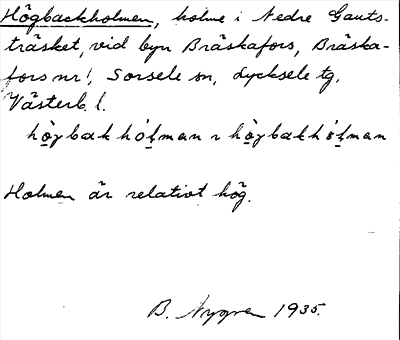 Högbackholmen, holme i Nedre Gauts-
träsket, vid byn Bräskafors, Bräska-
fors nr 1, Sorsele sn, Lycksele tg,
Västerb. l.
hò̤gbak hó̤l̥man ~ hò̤gbakhó̤l̥man
Holmen är relativt hög.
B. Nygren 1935.